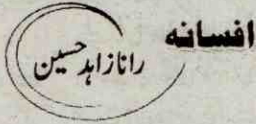 افسانه
رانا زاہد حسین